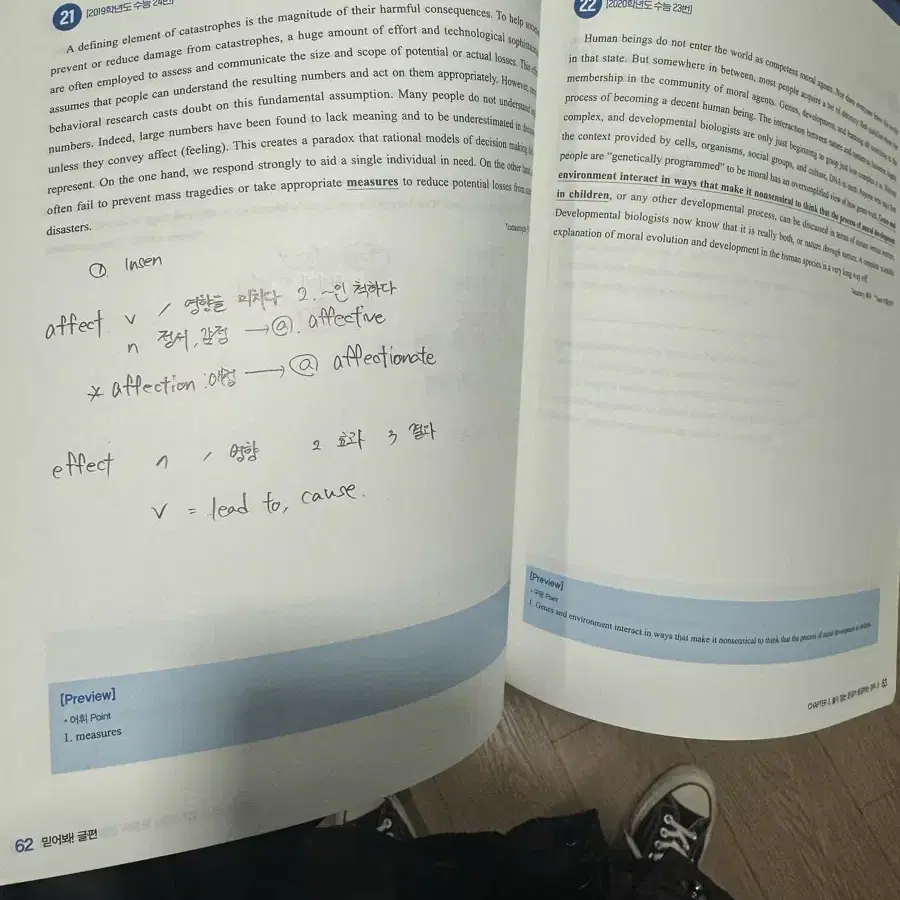 21 [2019학년도 수능 24번]
A defining element of catastrophes is the magnitude of their harmful consequences. To help
prevent or reduce damage from catastrophes, a huge amount of effort and technological
are often employed to assess and communicate the size and scope of potential or actual losses. This
assumes that people can understand the resulting numbers and act on them appropriately. However,
behavioral research casts doubt on this fundamental assumption. Many people do not understand
numbers. Indeed, large numbers have been found to lack meaning and to be underestimated in
unless they convey affect (feeling). This creates a paradox that rational models of decision making
represent. On the one hand, we respond strongly to aid a single individual in need. On the other
often fail to prevent mass tragedies or take appropriate measures to reduce potential losses from
disasters.
① Insen
affect v 1 영향을 미치다 2. ~인 척하다
n 정서, 감정 → ⓐ. affective
* affection : 애정 → ⓐ affectionate
effect n 1 영향 2 효과 3 결과
v = lead to, cause.
[Preview]
• 어휘 Point
1. measures
62 믿어봐! 글편
22 [2020학년도 수능 23번]
Human beings do not enter the world as competent moral agents. Nor does everyone leave the world
in that state. But somewhere in between, most people acquire a bit of decency that qualifies them for
membership in the community of moral agents. Genes, development, and learning all contribute to the
process of becoming a decent human being. The interaction between nature and nurture is, however, highly
complex, and developmental biologists are only just beginning to grasp just how complex it is. Without
the context provided by cells, organisms, social groups, and culture, DNA is inert. Anyone who says that
people are "genetically programmed" to be moral has an oversimplified view of how genes work. Genes and
environment interact in ways that make it nonsensical to think that the process of moral development
in children, or any other developmental process, can be discussed in terms of nature versus nurture.
Developmental biologists now know that it is really both, or nature through nurture. A complete scientific
explanation of moral evolution and development in the human species is a very long way off.
[Preview]
• 구문 Point
1. Genes and environment interact in ways that make it nonsensical to think that the process of moral development in children
63